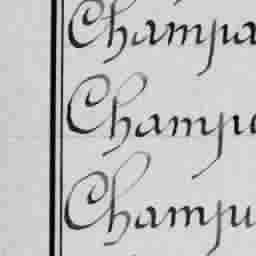 Champa
Champ
Champ